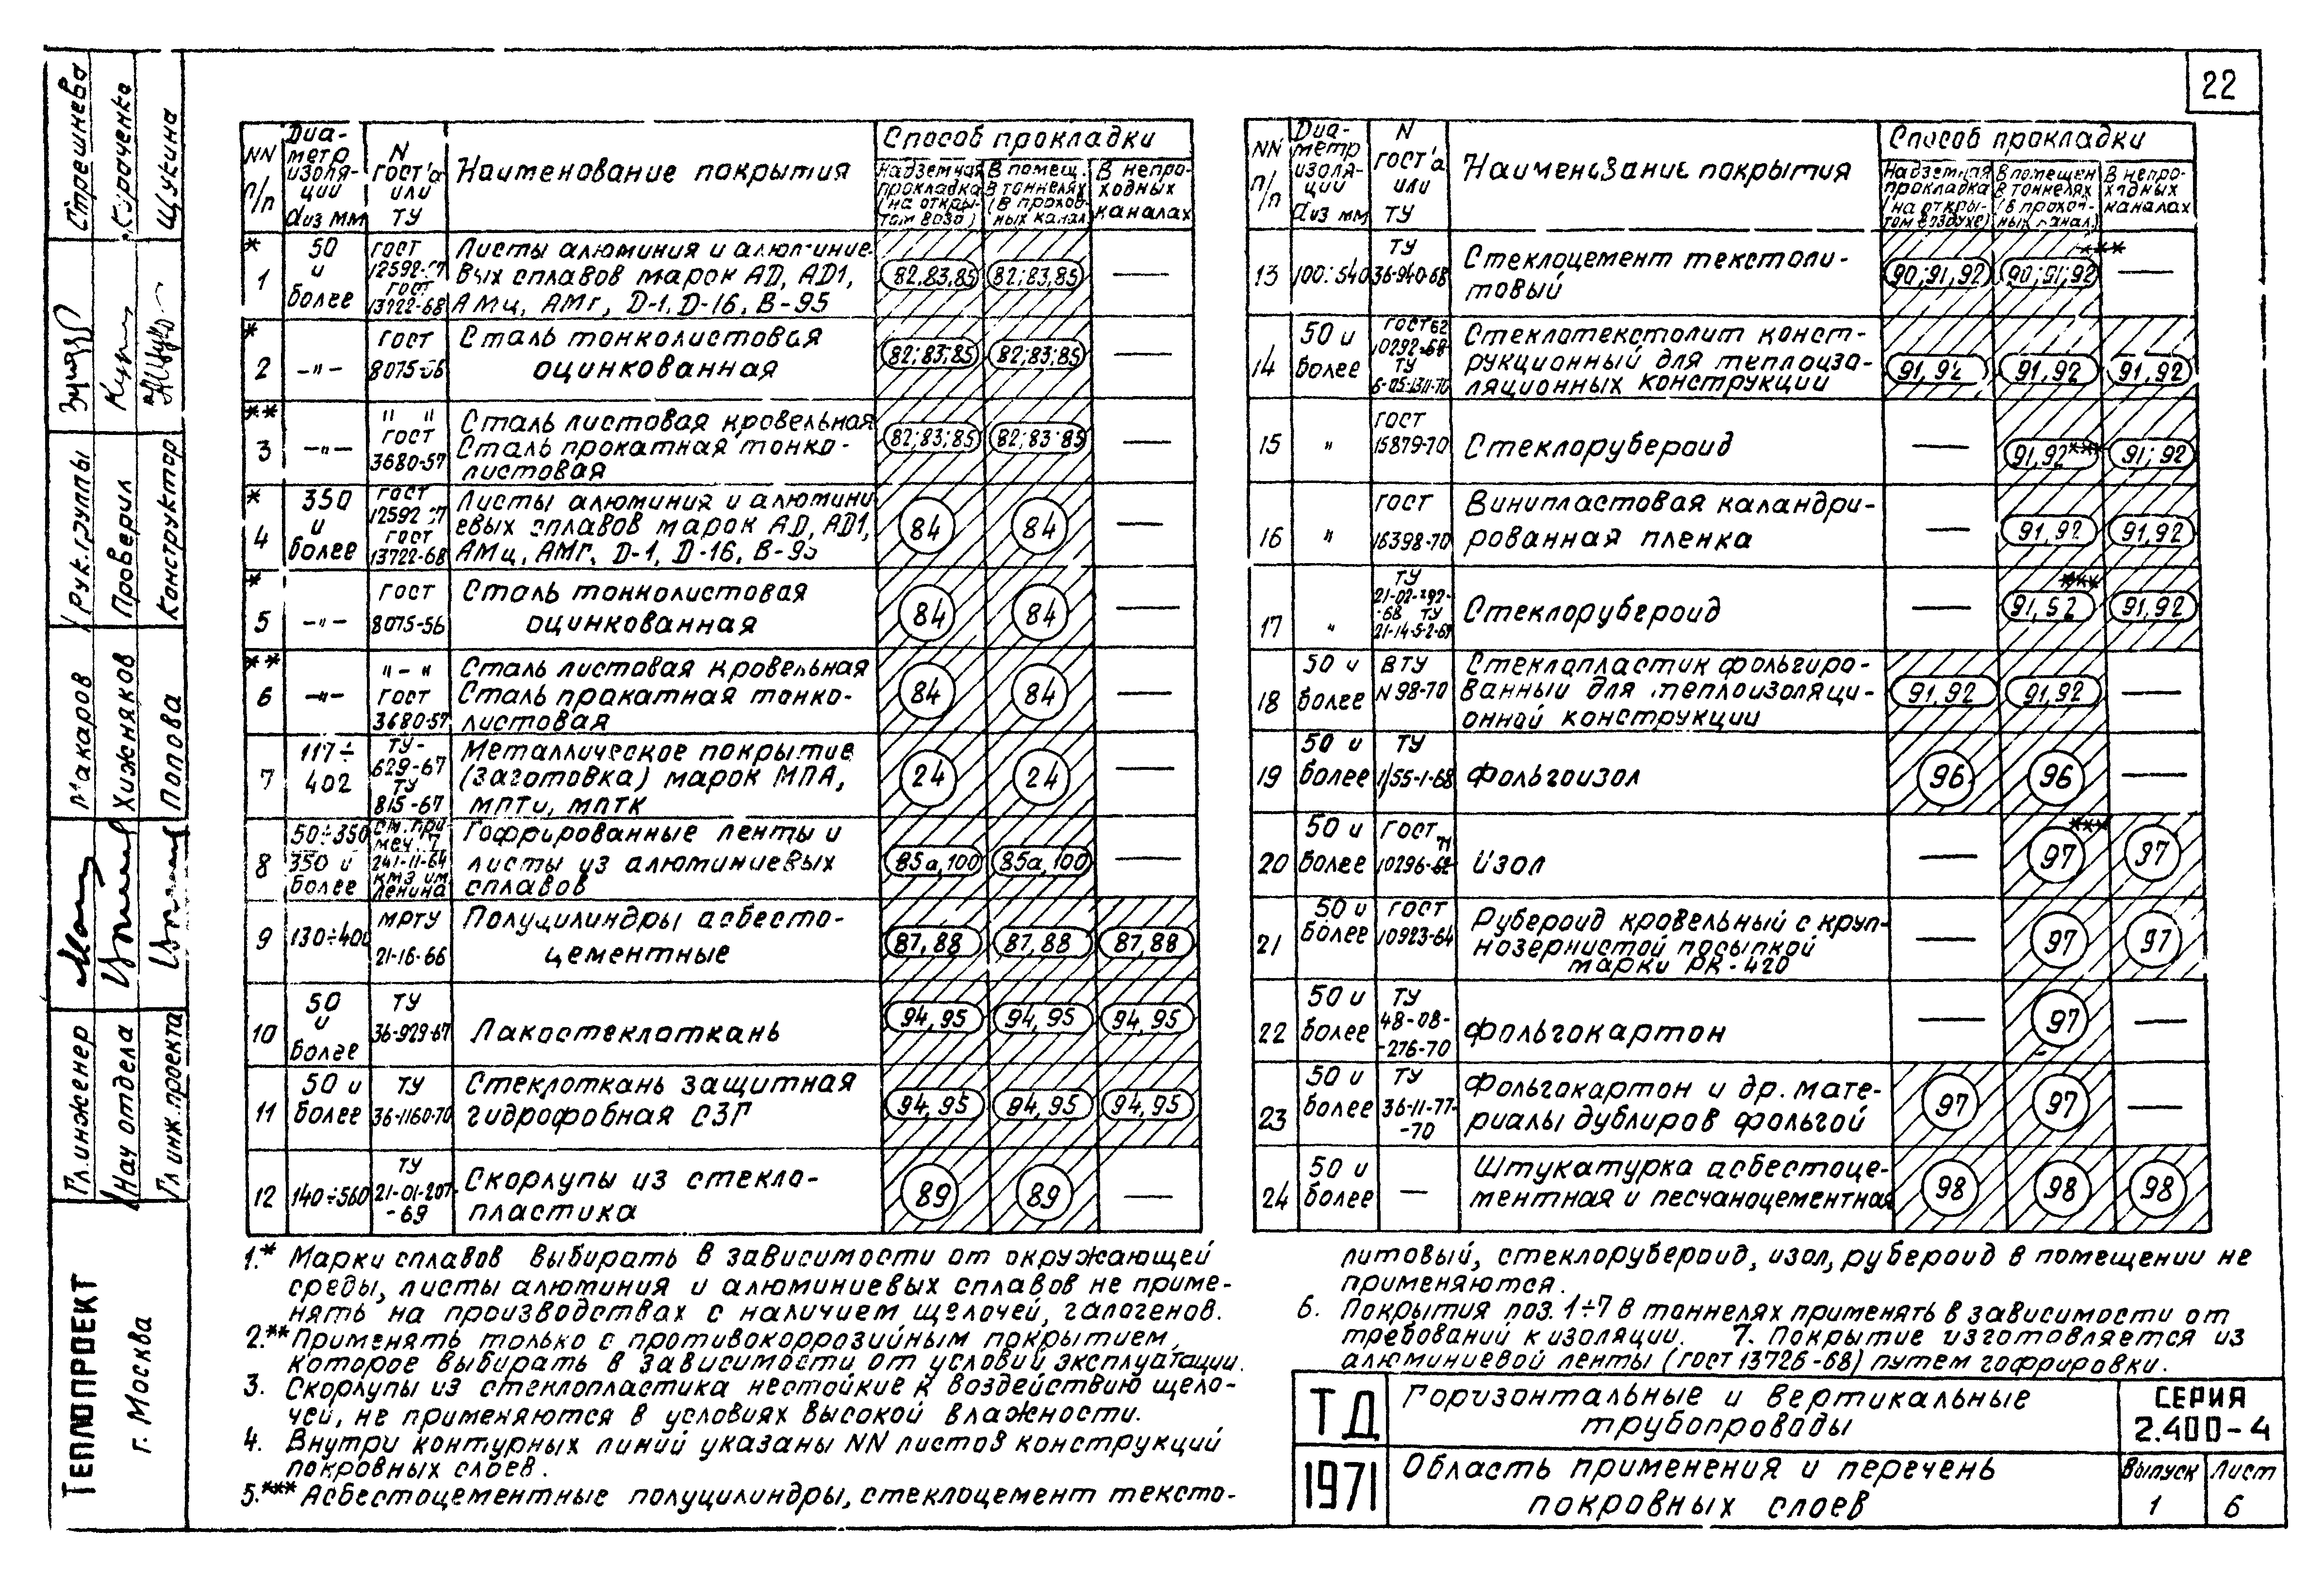 22
NN п/п
Диаметр изоляции dиз мм
N ГОСТ'а или ТУ
Наименование покрытия
Способ прокладки
Надземная прокладка (на откры-том возд)
В помещ. В тоннелях (В проход-ных канал)
В непро-ходных каналах
* 1
50 и более
ГОСТ ГОСТ 13722-68
Листы алюминия и алюминие-
вых сплавов марок АD, АD1,
АМц, АМг, D-1, D-16, В-95
82,83,85 82;83,85 —
* 2
—"—
ГОСТ
Сталь тонколистовая
оцинкованная
82;83;85 82;83;85 —
** 3
—"—
" " ГОСТ 3680-57
Сталь листовая кровельная
Сталь прокатная тонко-
листовая
82;83;85 82;83;85 —
* 4
350 и более
ГОСТ ГОСТ 13722-68
Листы алюминия и алюмини
евых сплавов марок АD, АD1,
АМц, АМг, D-1, D-16, В-95
84 84 —
* 5
—"—
ГОСТ 8075-56
Сталь тонколистовая
оцинкованная
84 84 —
** 6
—"—
"—" ГОСТ 3680-57
Сталь листовая кровельная
Сталь прокатная тонко-
листовая
84 84 —
7
117÷402
ТУ-629-67 ТУ 815-67
Металлическое покрытие
(заготовка) марок МПА,
МПТи, МПТК
24 24 —
8
50÷350 350 и более
см. при меч. 7 241-11-64 КМЗ им Ленина
Гофрированные ленты и
листы из алюминиевых
сплавов
85а,100 85а,100 —
9
130÷400
МРТУ 21-16-66
Полуцилиндры асбесто-
цементные
87,88 87,88 87,88
10
50 и более
ТУ 36-929-67
Лакостеклоткань
94,95 94,95 94,95
11
50 и более
ТУ 36-1160-70
Стеклоткань защитная
гидрофобная СЗГ
94,95 94,95 94,95
12
140÷560
ТУ 21-01-207-69
Скорлупы из стекло-
пластика
89 89 —
NN п/п
Диаметр изоляции dиз мм
N ГОСТ'а или ТУ
Наименование покрытия
Способ прокладки
Надземная прокладка (на откры-том воздухе)
В помещен В тоннелях (В проход-ных канал.)
В непро-ходных каналах
13
100÷540
ТУ 36-940-68
Стеклоцемент тексто­ли-
товый
90;91,92 90;91;92 *** —
14
50 и более
ГОСТ 62 10292-68 ТУ 6-05-1311-70
Стеклотекстолит конст-
рукционный для теплоизо-
ляционных конструкции
91,92 91,92 91,92
15
"
ГОСТ 15879-70
Стеклорубероид
— 91,92*** 91;92
16
"
ГОСТ 16398-70
Винипластовая каландри-
рованная пленка
— 91,92 91,92
17
"
ТУ ТУ
Стеклорубероид
— 91,92 *** 91,92
18
50 и более
ВТУ N 98-70
Стеклопластик фольгиро-
ванный для теплоизоляци-
онной конструкции
91,92 91,92 —
19
50 и более
ТУ 1/55-1-68
Фольгоизол
96 96 —
20
50 и более
ГОСТ 71
Изол
— 97 *** 97
21
50 и более
ГОСТ 10923-64
Рубероид кровельный с круп-
нозернистой посыпкой
марки РК-420
— 97 97
22
50 и более
ТУ 48-08--276-70
Фольгокартон
— 97 —
23
50 и более
ТУ 36-11-77--70
Фольгокартон и др. мате-
риалы дублиров фольгой
97 97 —
24
50 и более
—
Штукатурка асбестоце-
ментная и песчаноцементная
98 98 98
1.* Марки сплавов выбирать в зависимости от окружающей
среды, листы алюминия и алюминиевых сплавов не приме-
нять на производствах с наличием щелочей, галогенов.
2.** Применять только с противокоррозийным покрытием,
которое выбирать в зависимости от условий эксплуатации.
3. Скорлупы из стеклопластика нестойкие к воздействию щело-
чей, не применяются в условиях высокой влажности.
4. Внутри контурных линий указаны NN листов конструкций
покровных слоев.
5.*** Асбестоцементные полуцилиндры, стеклоцемент тексто-
литовый, стеклорубероид, изол, рубероид в помещении не
применяются.
6. Покрытия поз. 1÷7 в тоннелях применять в зависимости от
требований к изоляции. 7. Покрытие изготовляется из
алюминиевой ленты (ГОСТ 13726-68) путем гофрировки.
ТД
1971
Горизонтальные и вертикальные
трубопроводы
Область применения и перечень
покровных слоев
СЕРИЯ
2.400-4
Выпуск
1
Лист
6
ТЕПЛОПРОЕКТ
г. Москва
Гл.инженер
Нач отдела
Гл инж.проекта
Макаров
Хижняков
Попова
рук.группы
Проверил
Конструктор
Стрешнева
Куроченко
Щукина